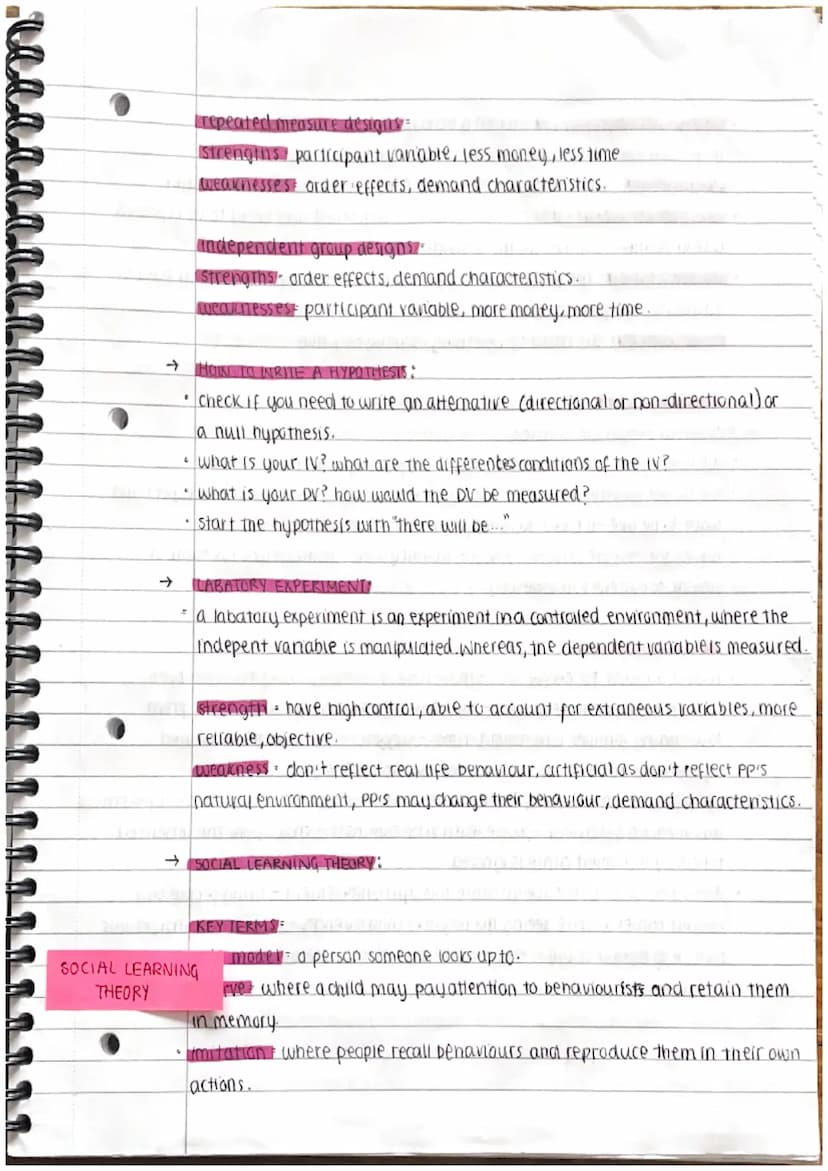 repeated measure designs=
strengths= participant variable, less money, less time
weaknesses= order effects, demand characteristics.
independent group designs=
strengths= order effects, demand characteristics.
weaknesses= participant variable, more money, more time.
→ HOW TO WRITE A HYPOTHESIS:
• check if you need to write an alternative (directional or non-directional) or
a null hypothesis.
• what is your IV? what are the differentes conditions of the IV?
• what is your DV? how would the DV be measured?
• start the hypothesis with "there will be..."
→ LABATORY EXPERIMENT:
= a labatory experiment is an experiment in a controlled environment, where the
indepent variable is manipulated. whereas, the dependent variable is measured.
strength = have high control, able to account for extraneous variables, more
reliable, objective.
weakness = don't reflect real life behaviour, artificial as don't reflect PP's
natural environment, PP's may change their behaviour, demand characteristics.
→ SOCIAL LEARNING THEORY:
KEY TERMS=
model= a person someone looks up to.
SOCIAL LEARNING
THEORY
rve= where a child may pay attention to behaviourists and retain them
in memory.
• imitation= where people recall behaviours and reproduce them in their own
actions.